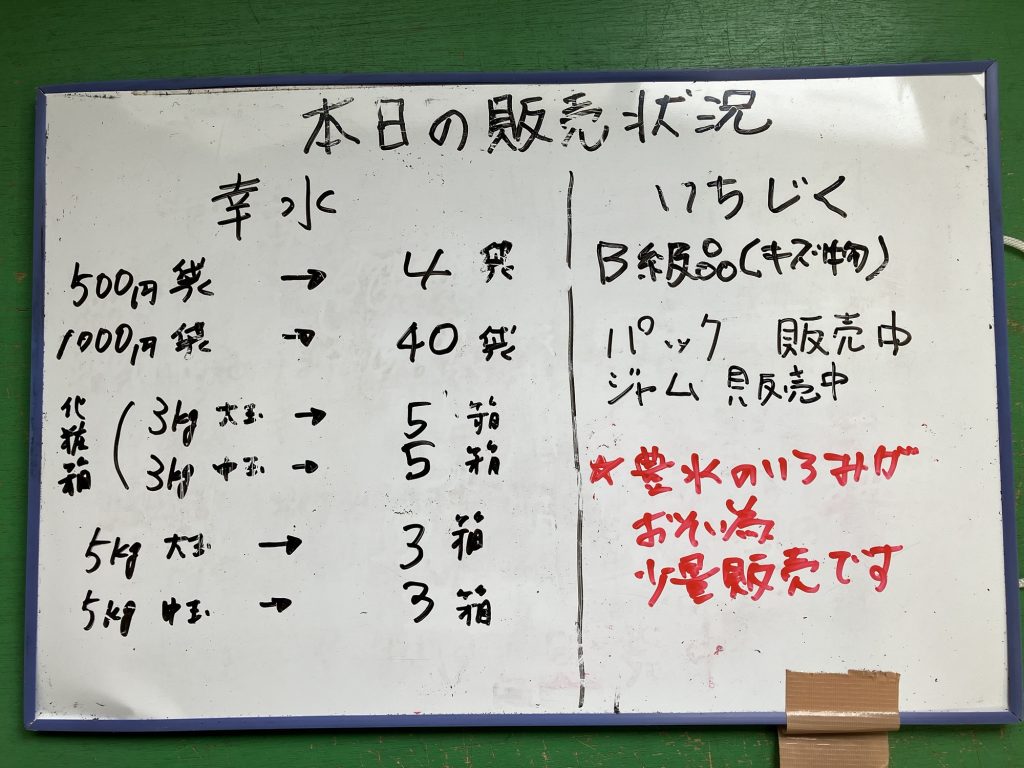 本日の販売状況
幸水
500円袋 → 4袋
1000円袋 → 40袋
化粧箱
3kg 大玉 → 5箱
3kg 中玉 → 5箱
5kg 大玉 → 3箱
5kg 中玉 → 3箱
いちじく
B級品(キズ物)
パック 販売中
ジャム 販売中
☆豊水のいろみが
おそい為
少量販売です